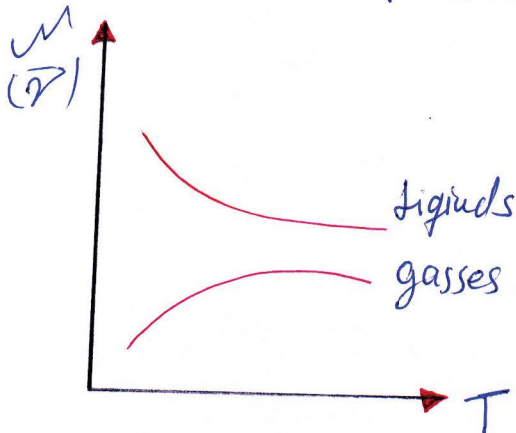 μ
(ν̄)
Liginds
gasses
T